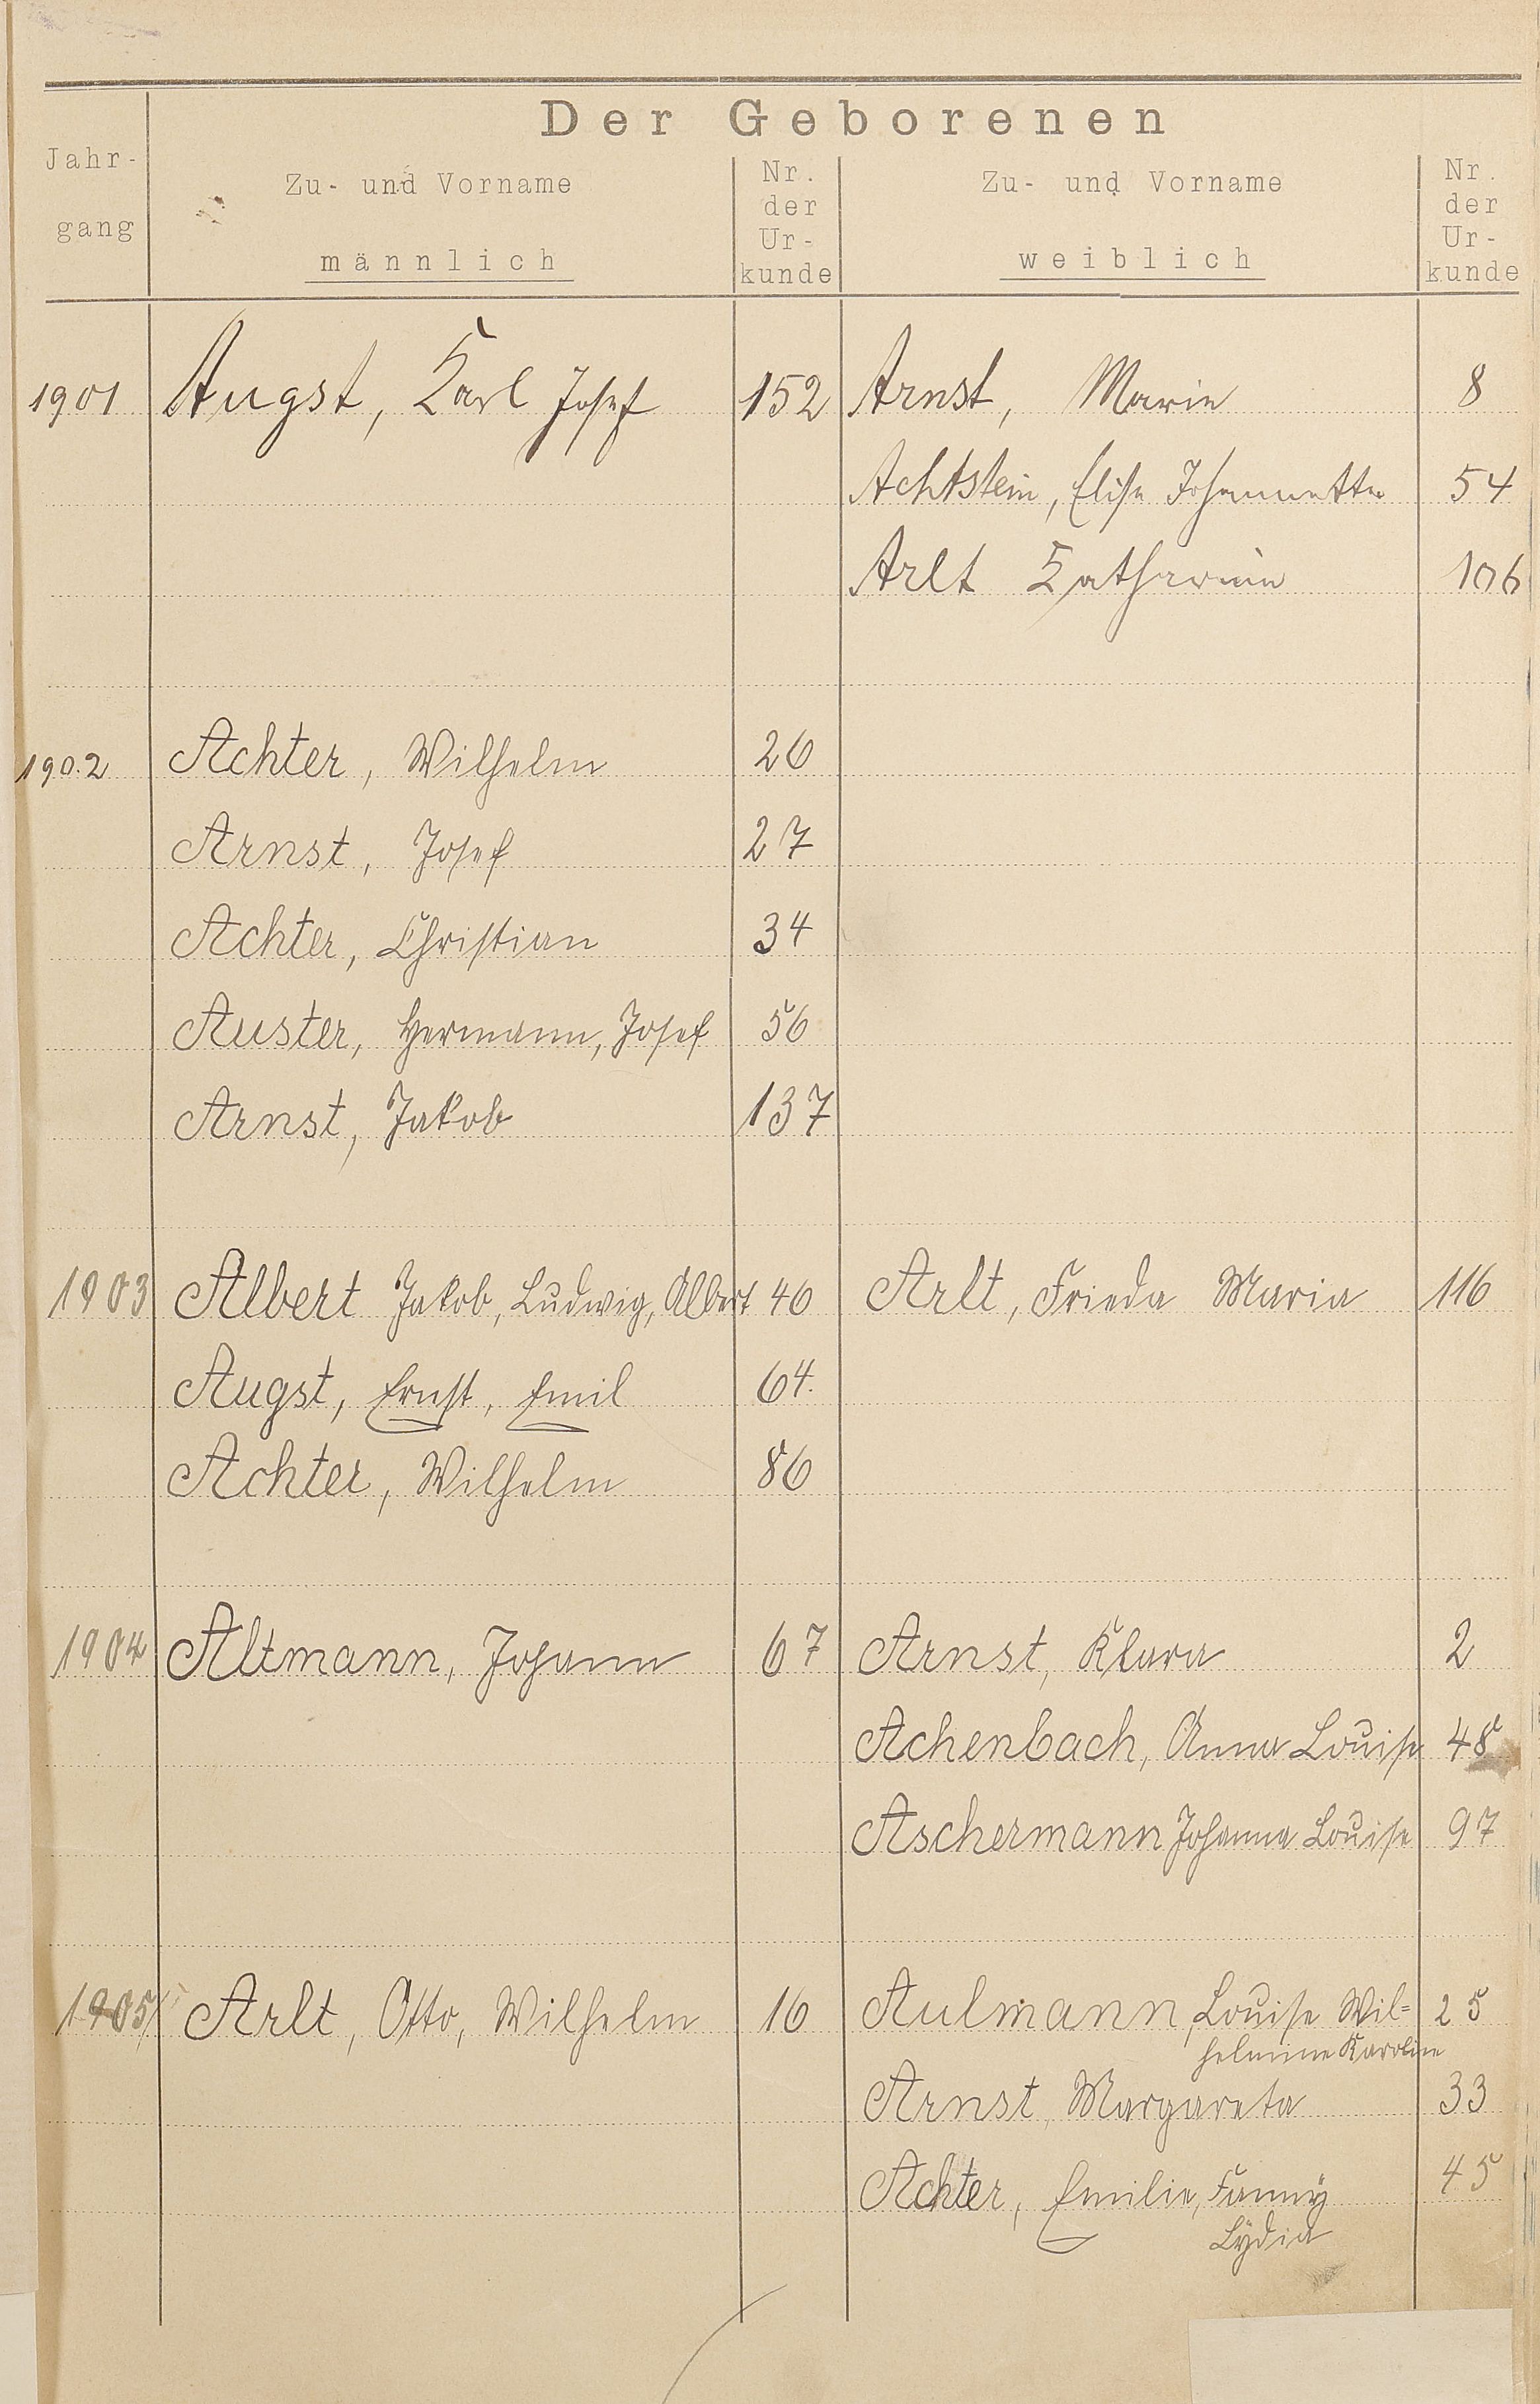 Der Geborenen
Jahr-
gang
Zu- und Vorname
männlich
Nr.
der
Ur-
kunde
Zu- und Vorname
weiblich
Nr.
der
Ur-
kunde
1901 Augst, Karl Josef 152 Arnst, Marie 8
Achtstein, Elise Johannette 54
Arlt Katharina 106
1902 Achter, Wilhelm 26
Arnst, Josef 27
Achter, Christian 34
Auster, Hermann, Josef 56
Arnst, Jakob 137
1903 Albert Jakob, Ludwig, Albert 46 Arlt, Frieda Maria 116
Augst, Ernst, Emil 64.
Achter, Wilhelm 86
1904 Altmann, Johann 67 Arnst, Klara 2
Achenbach, Anna Louise 48
Aschermann Johanna Louise 97
1905 Arlt, Otto, Wilhelm 16 Aulmann, Louise Wil= 25
helmine Karoline
Arnst, Margareta 33
Achter, Emilie, Fanny 45
Lydia